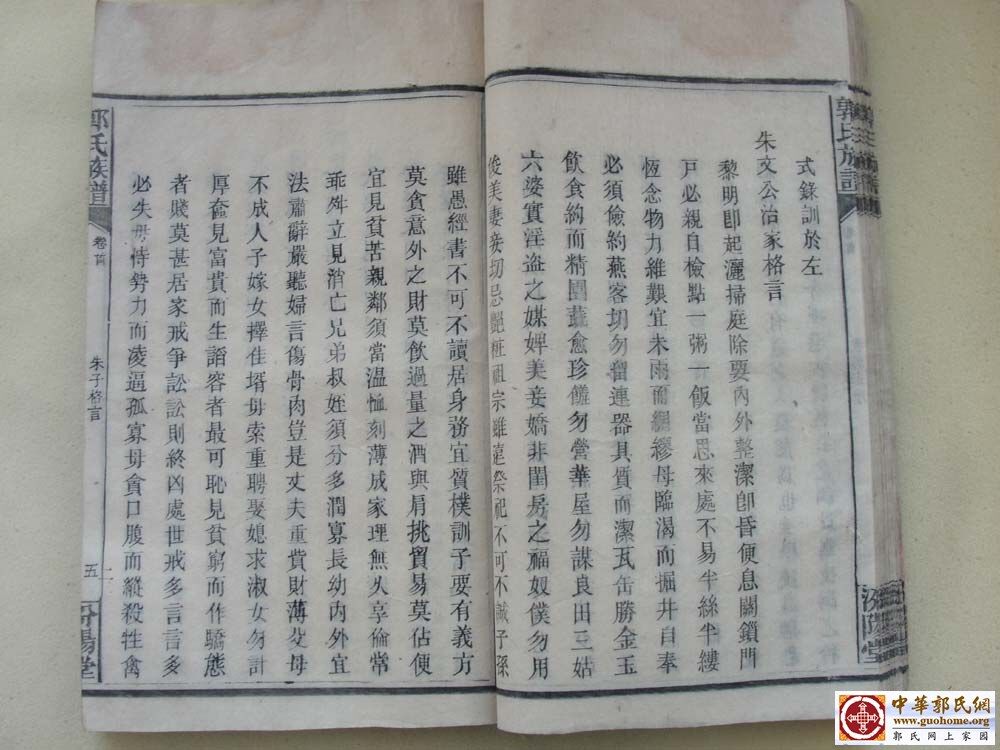 式錄訓於左
朱文公治家格言
黎明卽起灑掃庭除要內外整潔卽昏便息關鎖門
戶必親自檢點一粥一飯當思來處不易半絲半縷
恆念物力維艱宜未雨而綢繆毋臨渴而掘井自奉
必須儉約燕客切勿畱連器具質而潔瓦缶勝金玉
飲食約而精園蔬愈珍饈勿營華屋勿謀良田三姑
六婆實淫盜之媒婢美妾嬌非閨房之福奴僕勿用
俊美妻妾切忌艷粧祖宗雖遠祭祀不可不誠子孫
郭氏族譜
汾陽堂
雖愚經書不可不讀居身務宜質樸訓子要有義方
莫貪意外之財莫飲過量之酒與肩挑貿易莫佔便
宜見貧苦親鄰須當温恤刻薄成家理無久享倫常
乖舛立見消亡兄弟叔姪須分多潤寡長幼內外宜
法肅辭嚴聽婦言傷骨肉豈是丈夫重貲財薄父母
不成人子嫁女擇佳壻毋索重聘娶媳求淑女勿計
厚奩見富貴而生謟容者最可恥見貧窮而作驕態
者賤莫甚居家戒爭訟訟則終凶處世戒多言言多
必失毋恃勢力而淩逼孤寡毋貪口腹而縱殺牲禽
郭氏族譜
卷首
朱子格言
五
汾陽堂
中華郭氏網
www.guohome.org
郭氏网上家园